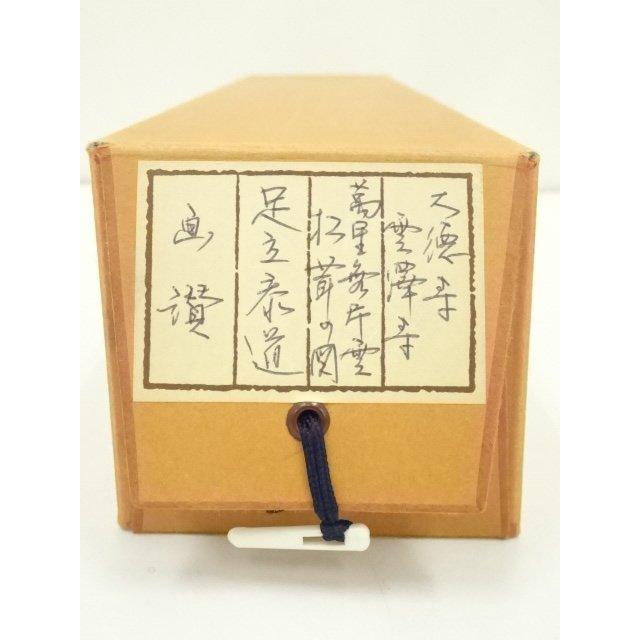 大徳寺
雲澤寺
萬里無片雲
松茸の図
足立泰道
画讃